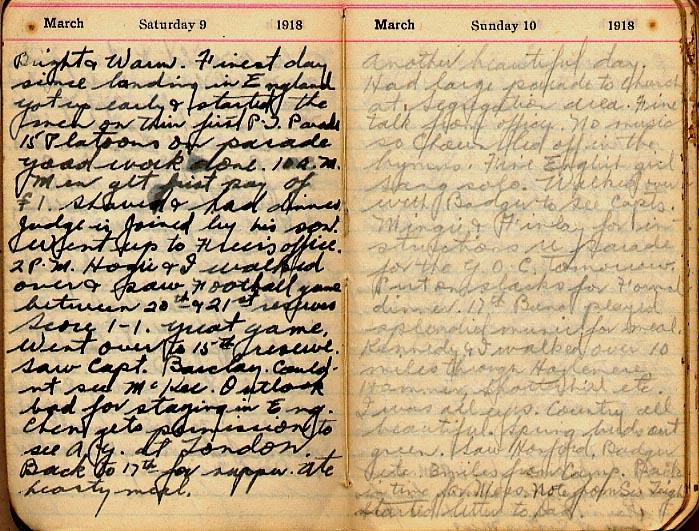 March Saturday 9 1918
Bright & Warm. Finest day
since landing in England
got up early & started the
men on their first P.T. Parade
15 Platoons on parade
good work done. 10 A.M.
Men get first pay of
£1. Shaved & had dinner
Judge is joined by his son.
Went up to office.
2 P.M. Hogie & I walked
over & saw Football game
between 20th & 21st reserves
Score 1-1. great game.
Went over to 15th reserve.
Saw Capt. Barclay. Could-
nt see McKee. Outlook
bad for staging in Eng.
gets permission to
see A.G. at London
Back to 17th for supper. Ate
hearty meal.
March Sunday 10 1918
Another beautiful day.
Had large parade to Church
at Segregation area. Fine
talk from officer. No music
so led off in the
hymns. Fine English girl
sang solo. Walked over
with Badger to see Capts.
Mingie & Finlay for in-
structions re parade
for the G.O.C. tomorrow.
Put on slacks for Formal
dinner. 17th Band played
splendid music for meal.
Kennedy & I walked over 10
miles through Haslemere,
etc.
I was all eyes. Country all
beautiful. Spring buds out
green. Saw Badger
Pete. 3 miles from Camp. Back
in time for Mess. Note from
Started letter to Dad.